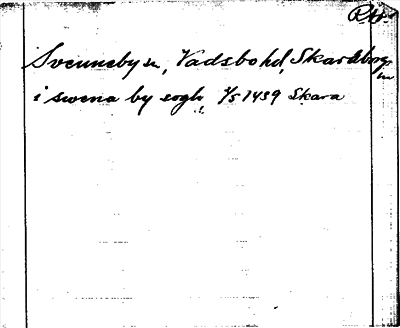 Svenneby sn, Vadsbo hd, Skaraborgs
i swena by sogh 1/5 1439 Skara